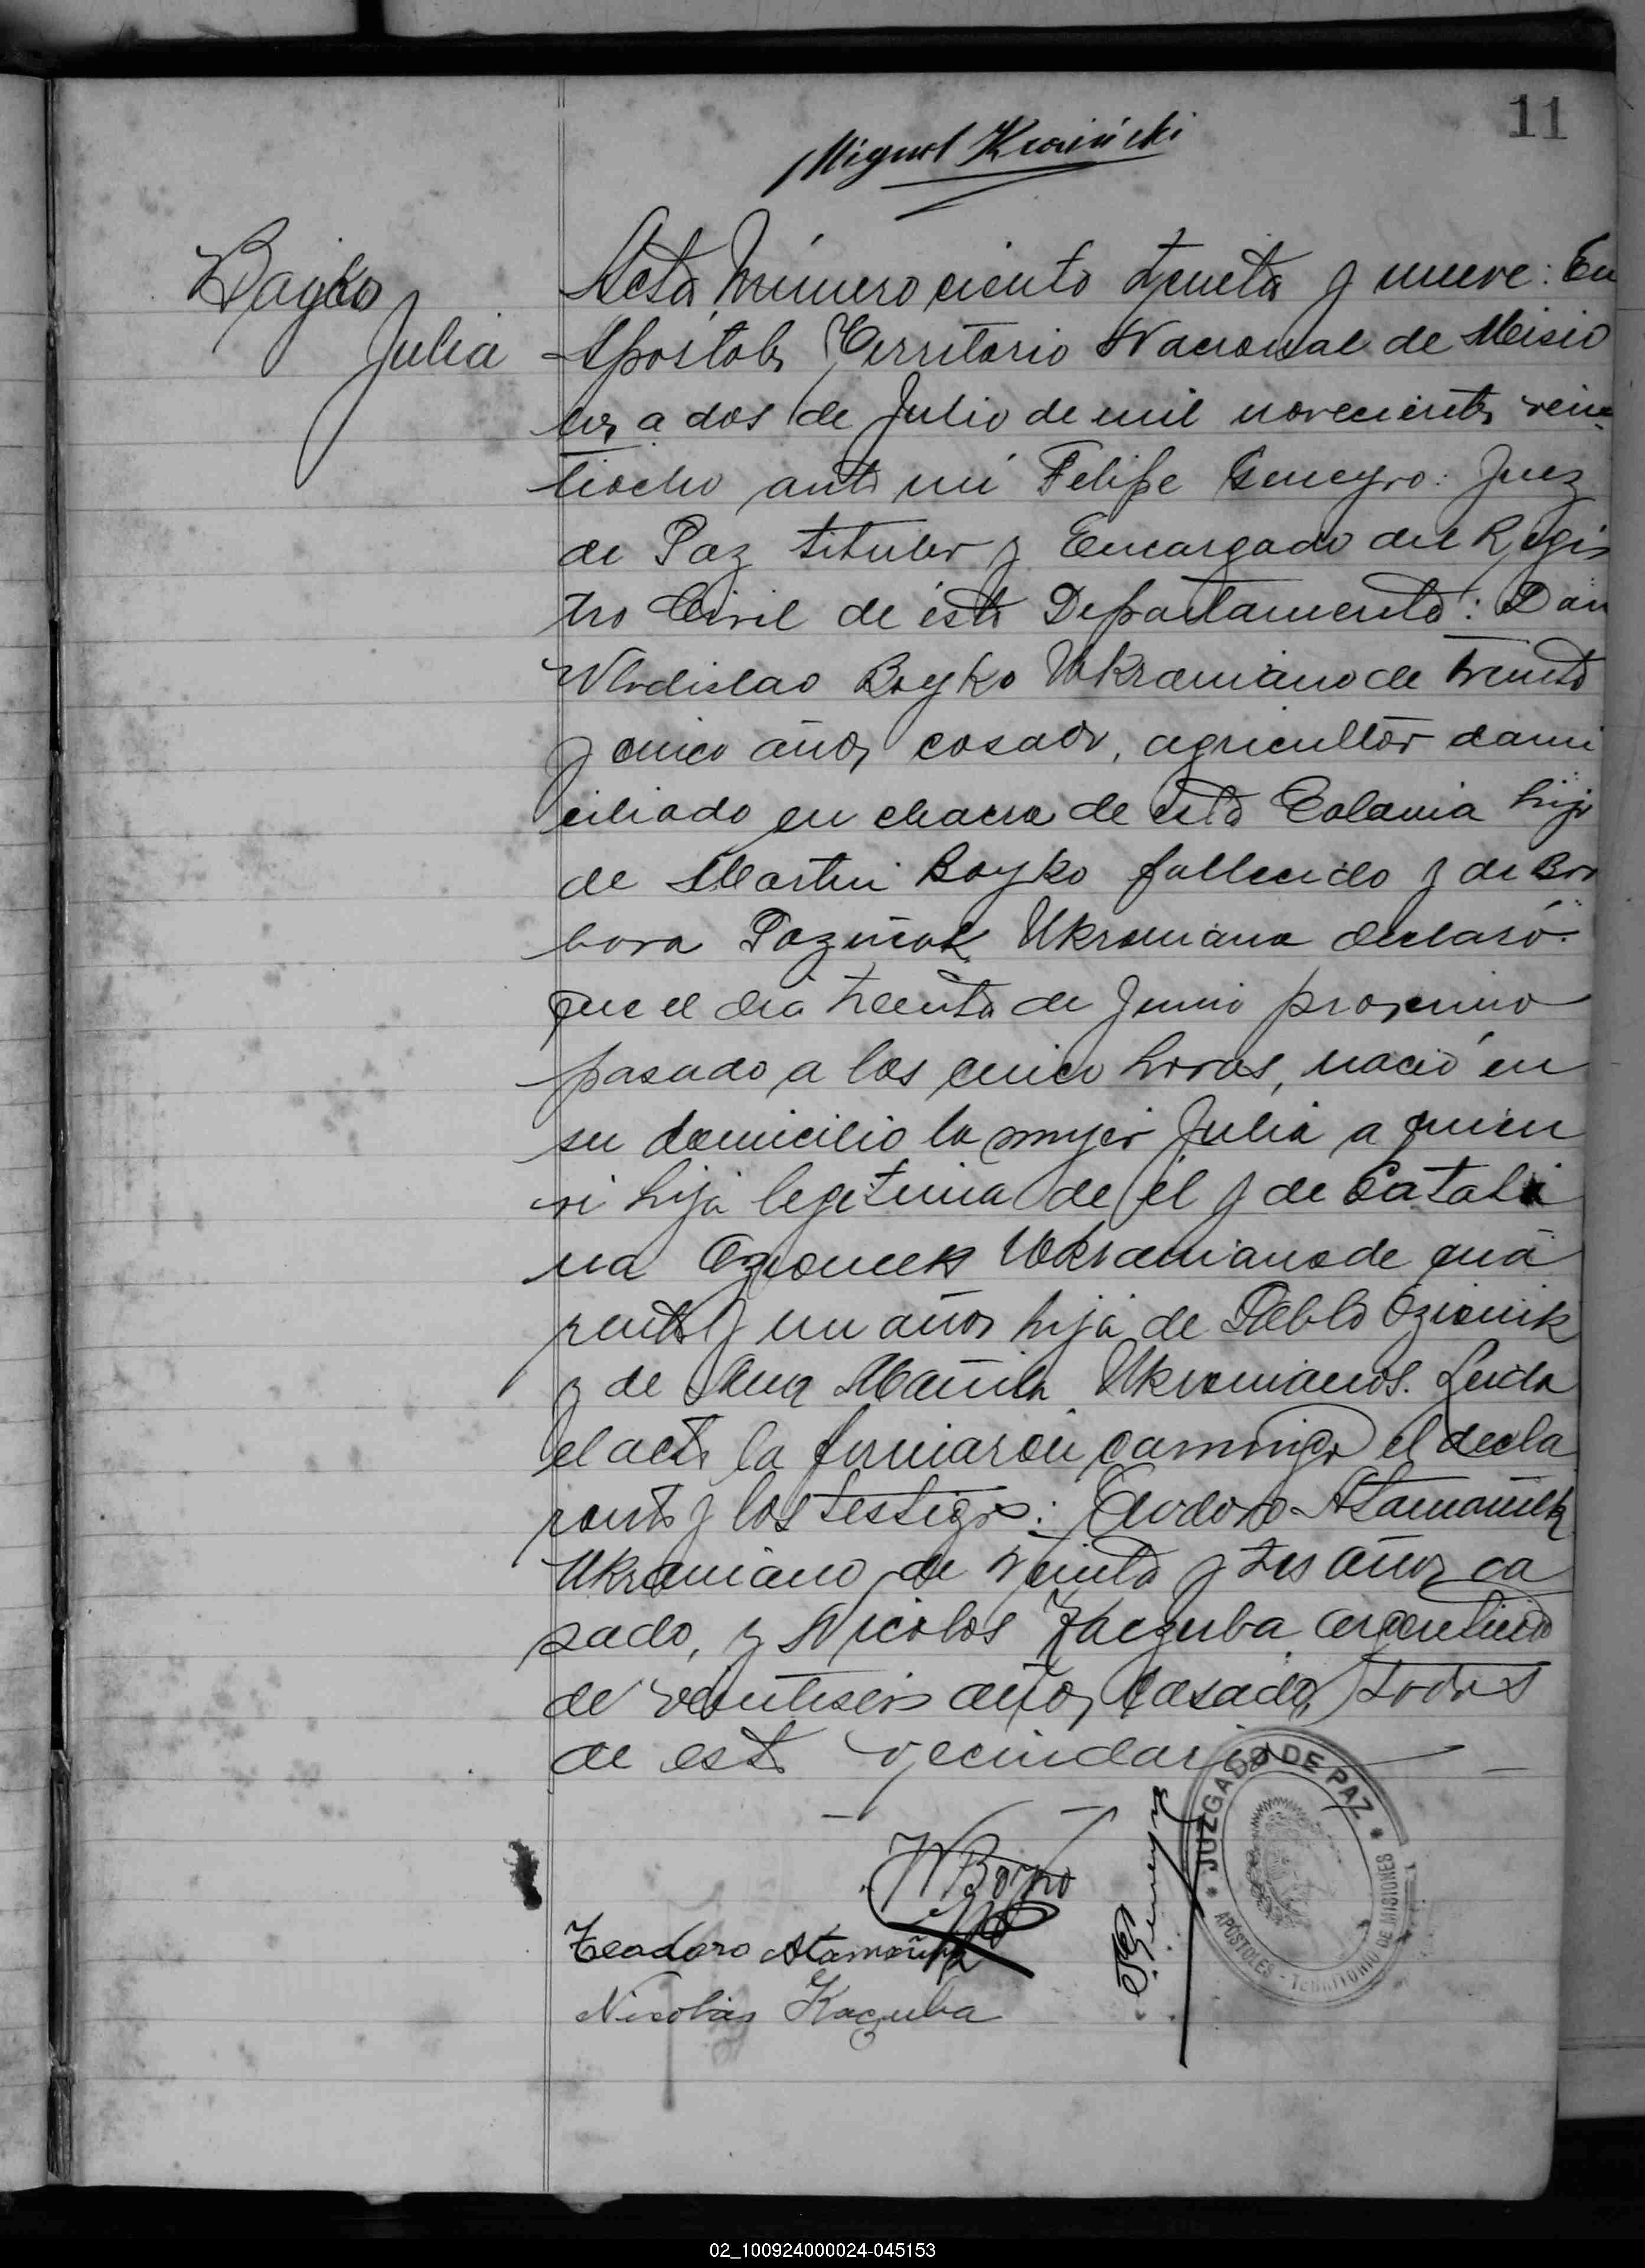 11
Miguel Krasiński
Bayko
Julia
Acta Número ciento treinta y nueve: En
Apóstoles Territorio Nacional de Misio
nes a dos de Julio de mil novecientos vein
tiocho ante mí Felipe Geneyro: Juez
de Paz titular y Encargado del Regis
tro Civil de este Departamento: Don
Wladislao Boyko Ukraniano de treinta
y cinco años, casado, agricultor domi
ciliado en chacra de esta Colonia hijo
de Martin Boyko fallecido y de Bar
bara Pazniak Ukraniana declaró:
que el día treinta de Junio proximo
pasado a las cinco horas, nació en
su domicilio la mujer Julia a quien
vi hija legitima de él y de Catali
na Ozionek Ukraniana de cua
renta y un años hija de Pablo Ozionik
y de Ana Ukranianos. Leida
el acta la firmaron conmigo el decla
rante y los testigos: Teodoro Atamañuk
Ukraniano de treinta y tres años ca
sado, y Nicolas Kaczuba argentino
de veintiseis años, casado, todos
de este vecindario
W Boyko
Teodoro Atamañuk
Nicolás Kaczuba
F. Geneyro
JUZGADO DE PAZ
APÓSTOLES - TERRITORIO DE MISIONES
02_100924000024-045153